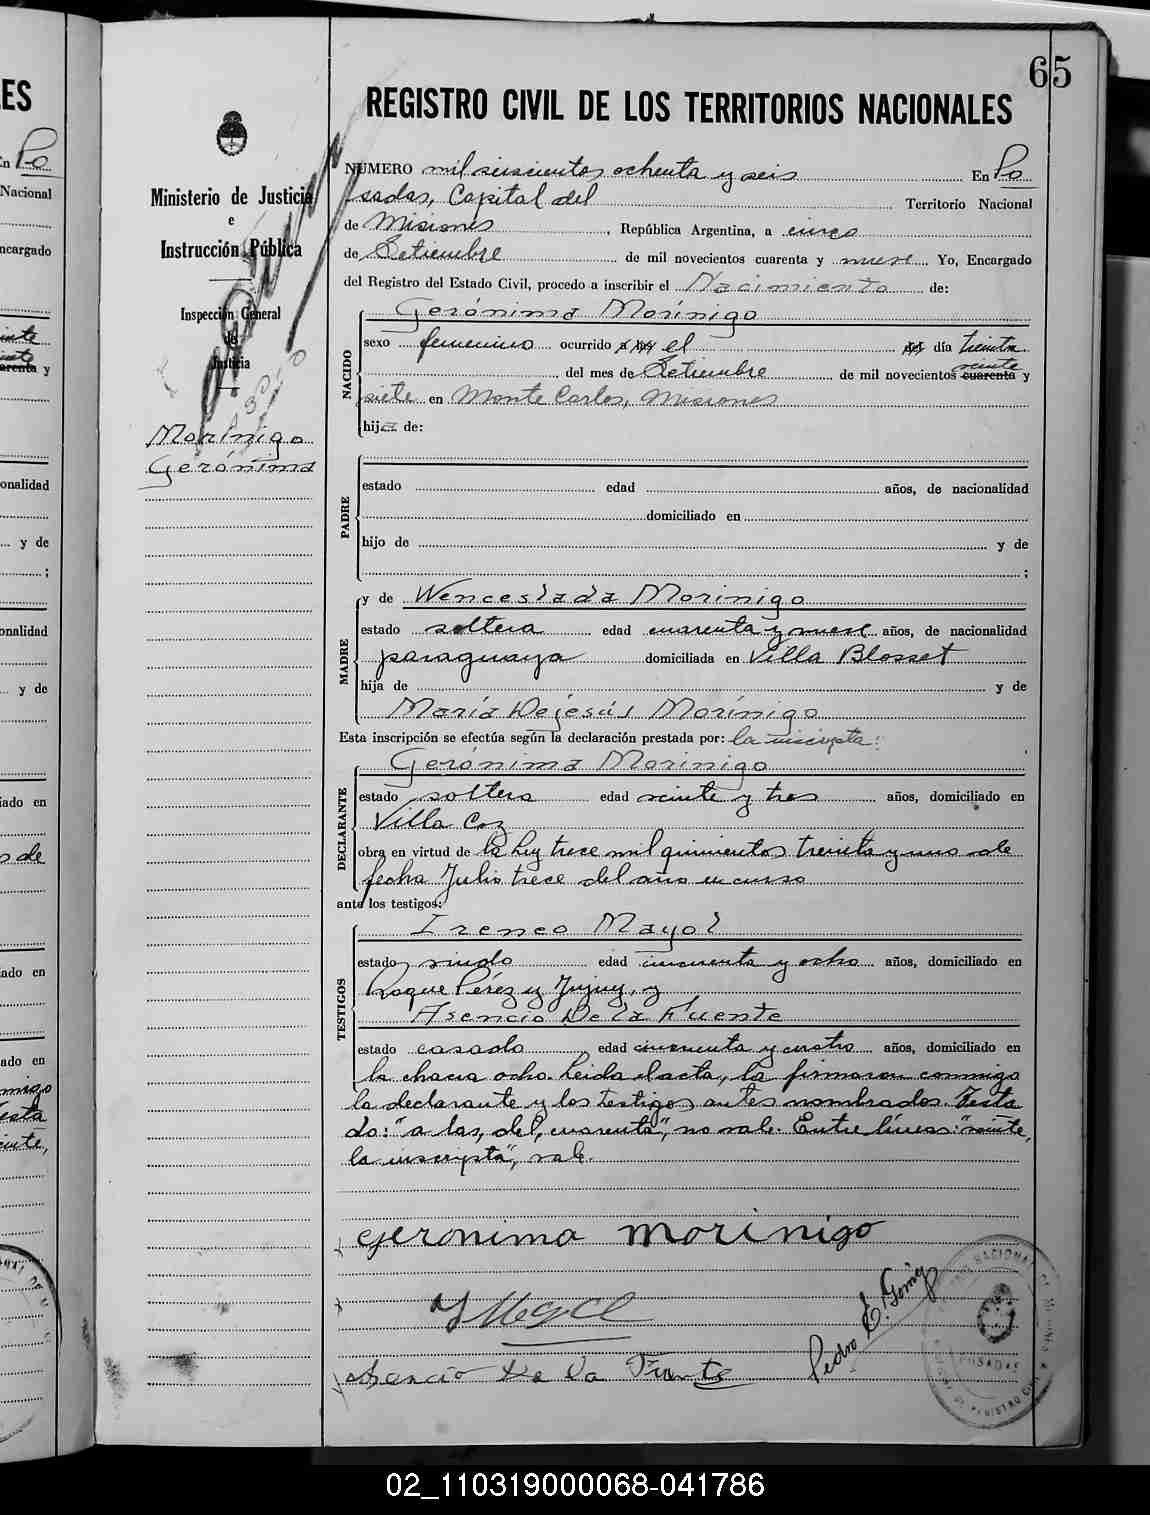 65
REGISTRO CIVIL DE LOS TERRITORIOS NACIONALES
Ministerio de Justicia
e
Instrucción Pública
Inspección General
de
Justicia
Morínigo
Gerónima
NUMERO mil seiscientos ochenta y seis En Po
sadas, Capital del Territorio Nacional
de Misiones, República Argentina, a cinco
de Setiembre de mil novecientos cuarenta y nueve Yo, Encargado
del Registro del Estado Civil, procedo a inscribir el Nacimiento de:
NACIDO
Gerónima Morínigo
sexo femenino ocurrido a las el del día treinta
veinte
del mes de Setiembre de mil novecientos cuarenta y
siete en Monte Carlos, Misiones
hija de:
PADRE
estado edad años, de nacionalidad
domiciliado en
hijo de y de
;
MADRE
y de Wenceslada Morinigo
estado soltera edad cuarenta y nueve años, de nacionalidad
paraguaya domiciliada en Villa Blosset
hija de y de
María Dejesús Morínigo
Esta inscripción se efectúa según la declaración prestada por: la inscripta:
DECLARANTE
Gerónima Morinigo
estado soltera edad veinte y tres años, domiciliado en
Villa Coz
obra en virtud de la ley trece mil quinientos treinta y uno de
fecha Julio trece del año en curso
ante los testigos:
TESTIGOS
Ireneo Mayol
estado viudo edad cincuenta y ocho años, domiciliado en
Roque Pérez y Jujuy, y
Asencio De la Fuente
estado casado edad cincuenta y cuatro años, domiciliado en
la chacra ocho. Leida el acta, la firmaron conmigo
la declarante y los testigos antes nombrados. Testa
do: "a las, del, cuarenta", no vale. Entre líneas: "veinte,
la inscripta", vale.
Geronima morinigo
Pedro E. Gomez
Asencio De la Fuente
POSADAS
02_110319000068-041786